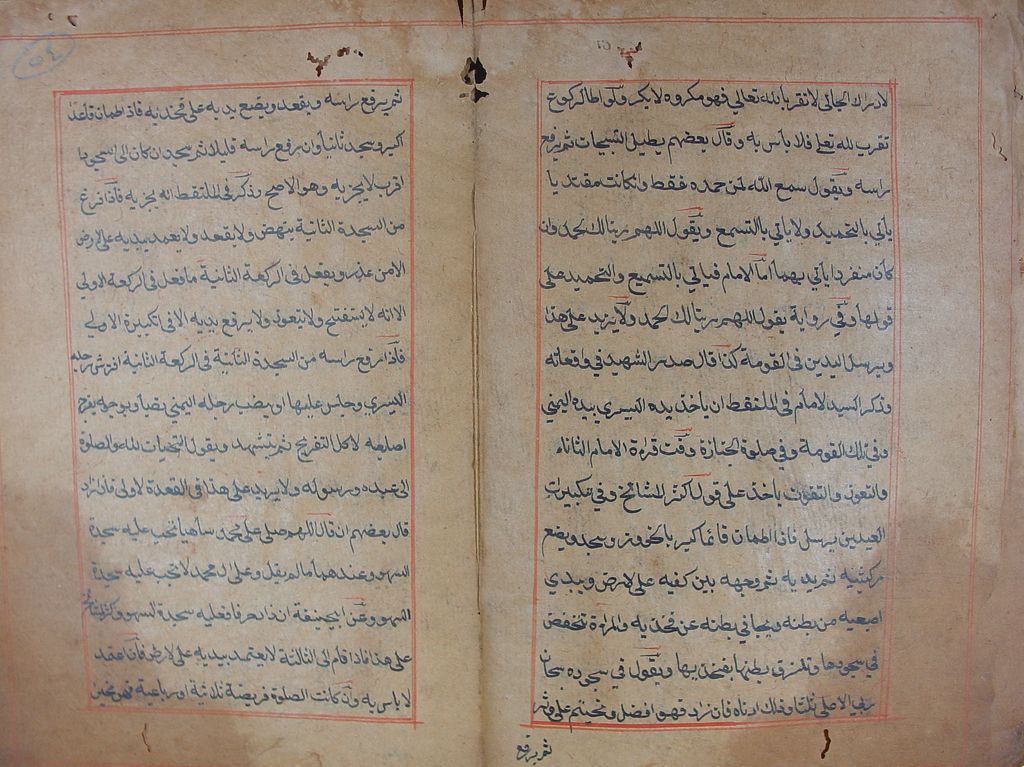 لادراك الجائي لا تقربا لله تعالى فهو مكروه لا يكفر ولو اطال الركوع
تقرب لله تعلى فلا باس به وقال بعضهم يطيل التسبيحات ثم يرفع
راسه ويقول سمع الله لمن حمده فقط وان كانت مقتديا
ياتي بالتحميد ولا ياتي بالتسمع ويقول اللهم ربنا لك الحمد وان
كان منفردا ياتي بهما اما الامام فياتي بالتسميع والتحميد على
قولهما وفي رواية يقول اللهم ربنا لك الحمد ولا يزيد على هذا
ويرسل اليدين في القومة كذا قال صدر الشهيد في واقعاته
وذكر السيد الامام في الملتقط ان ياخذ يده اليسرى بيده اليمنى
وفي تلك القومة وفي صلوة الجنازة وقت قراءة الامام الثناء
والتعوذ والقنوت ياخذ على قول اكثر المشائخ وفي تكبيرات
العيدين يرسل فاذا اطمان قائما كبر بالخرور وسجد ويضع
ركبتيه ثم يديه ثم وجهه بين كفيه على الارض ويبدي
اصبعيه من بطنه ويجافي بطنه عن فخذيه والمراة تنخفض
في سجودها وتلزق بطنها بفخذيها ويقول في سجوده سبحان
ربي الاعلى ثلثا وذلك ادناه فان زاد فهو افضل ويختم على وتر
ثم يرفع
ثم يرفع راسه ويقعد ويضع يديه على فخذيه فاذا اطمان قاعدا
كبر وسجد ثانيا وان رفع راسه قليلا ثم سجد ان كان الى السجود
اقرب لا يجزيه وهو الاصح وذكر في الملتقط انه يجزيه فاذا فرغ
من السجدة الثانية ينهض ولا يقعد ولا يعمد بيديه على الارض
الا من عذر ويفعل في الركعة الثانية ما فعل في الركعة الاولى
الا انه لا يستفتح ولا يتعوذ ولا يرفع يديه الا في تكبيرة الاولى
فاذا رفع راسه من السجدة الثانية في الركعة الثانية افترش رجله
اليسرى وجلس عليها وينصب رجله اليمنى نصبا ويوجه
اصابعه لا كل التفريج ثم يتشهد ويقول التحيات لله والصلوة
الى عبده ورسوله ولا يزيد على هذا في القعدة الاولى فان زاد
قال بعضهم ان قال اللهم صلى على محمد ساهيا تجب عليه سجدة
السهو وعندهما ما لم يقل وعلى ال محمد لا تجب عليه سجدة
السهو وعن ابي حنيفة ان زاد حرفا فعليه سجدة السهو واكثر المشائخ
على هذا فاذا قام الى الثالثة لا يعتمد بيديه على الارض فان اعتمد
لا باس به وان كانت الصلوة فريضة ثلاثية او رباعية فهو مخير